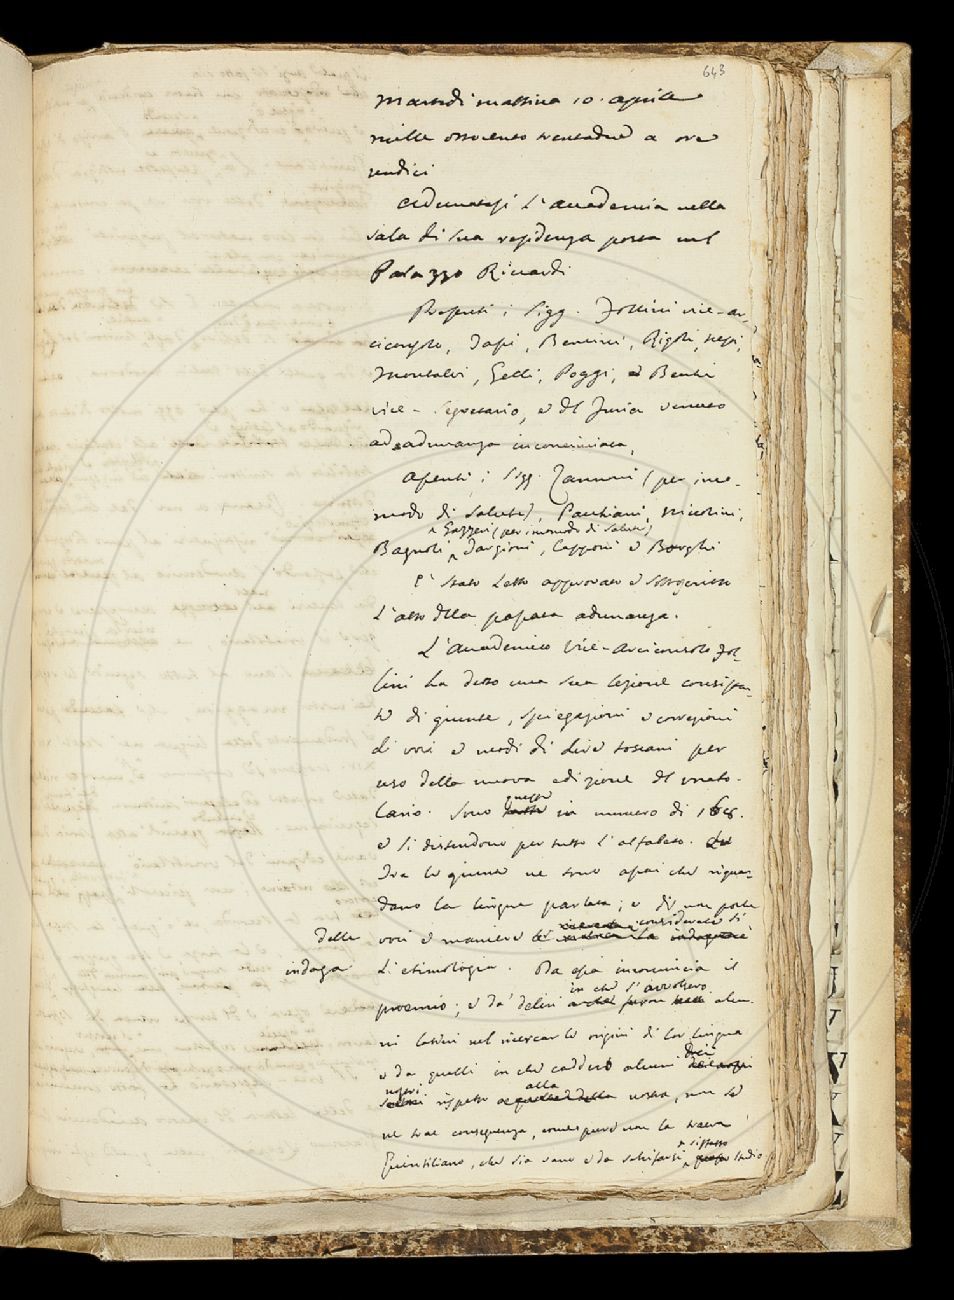 643
Martedì mattina 10. Aprile
mille ottocento trentadue a ore
undici
Adunatasi l'Accademia nella
sala di sua residenza posta nel
Palazzo Riccardi
Presenti i Sigg. Follini vice-ar-
ciconsolo, Bencini, Rigoli,
Montalvi, Gelli, Poggi, e Benci
vice-Segretario, e Del Furia venuto
ad adunanza incominciata.
Assenti i Sigg. Zannoni (per inco-
modo di salute), Pacchiani, Niccolini,
Gazzeri (per incomodo di salute)
Bagnoli, Targioni, Capponi e Borghi
È stato letto approvato e sottoscritto
l'atto della passata adunanza.
L'Accademico Vice-Arciconsolo Fol-
lini ha detto una sua lezione consisten-
te di giunte, spiegazioni e correzioni
di voci e modi di dire toscani per
uso della nuova edizione del vocabo-
lario. Sono queste in numero di
e si distendono per tutto l'alfabeto.
Tra le giunte ne sono assai che riguar-
dano la lingua parlata; e di una parte
considerate si
delle voci e maniere la
indaga l'etimologia. Da essa incomincia il
in che s'avvolsero
proemio; e da' delirj alcu-
ni latini nel ricercar le origini di lor lingua
Dei
e da quelli in che caddero alcuni
nostri alla
rispetto nostra, non se
ne trae conseguenza, come pure non la traeva
siffatto
Quintiliano, che sia vano e da schifarsi studio